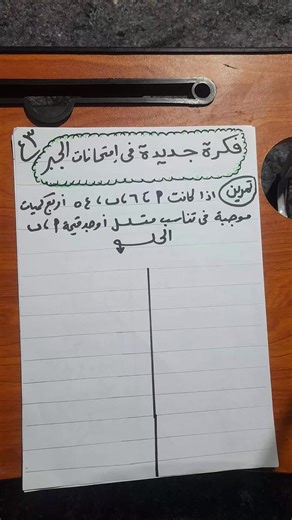 ٣ع
فكرة جديدة فى إمتحانات الجبر
تمرين اذا كانت أ ، ٦ ، ب ، ٥٤ أربع كميات
موجبة فى تناسب متسلسل أوجد قيمة أ ، ب
الحلــ